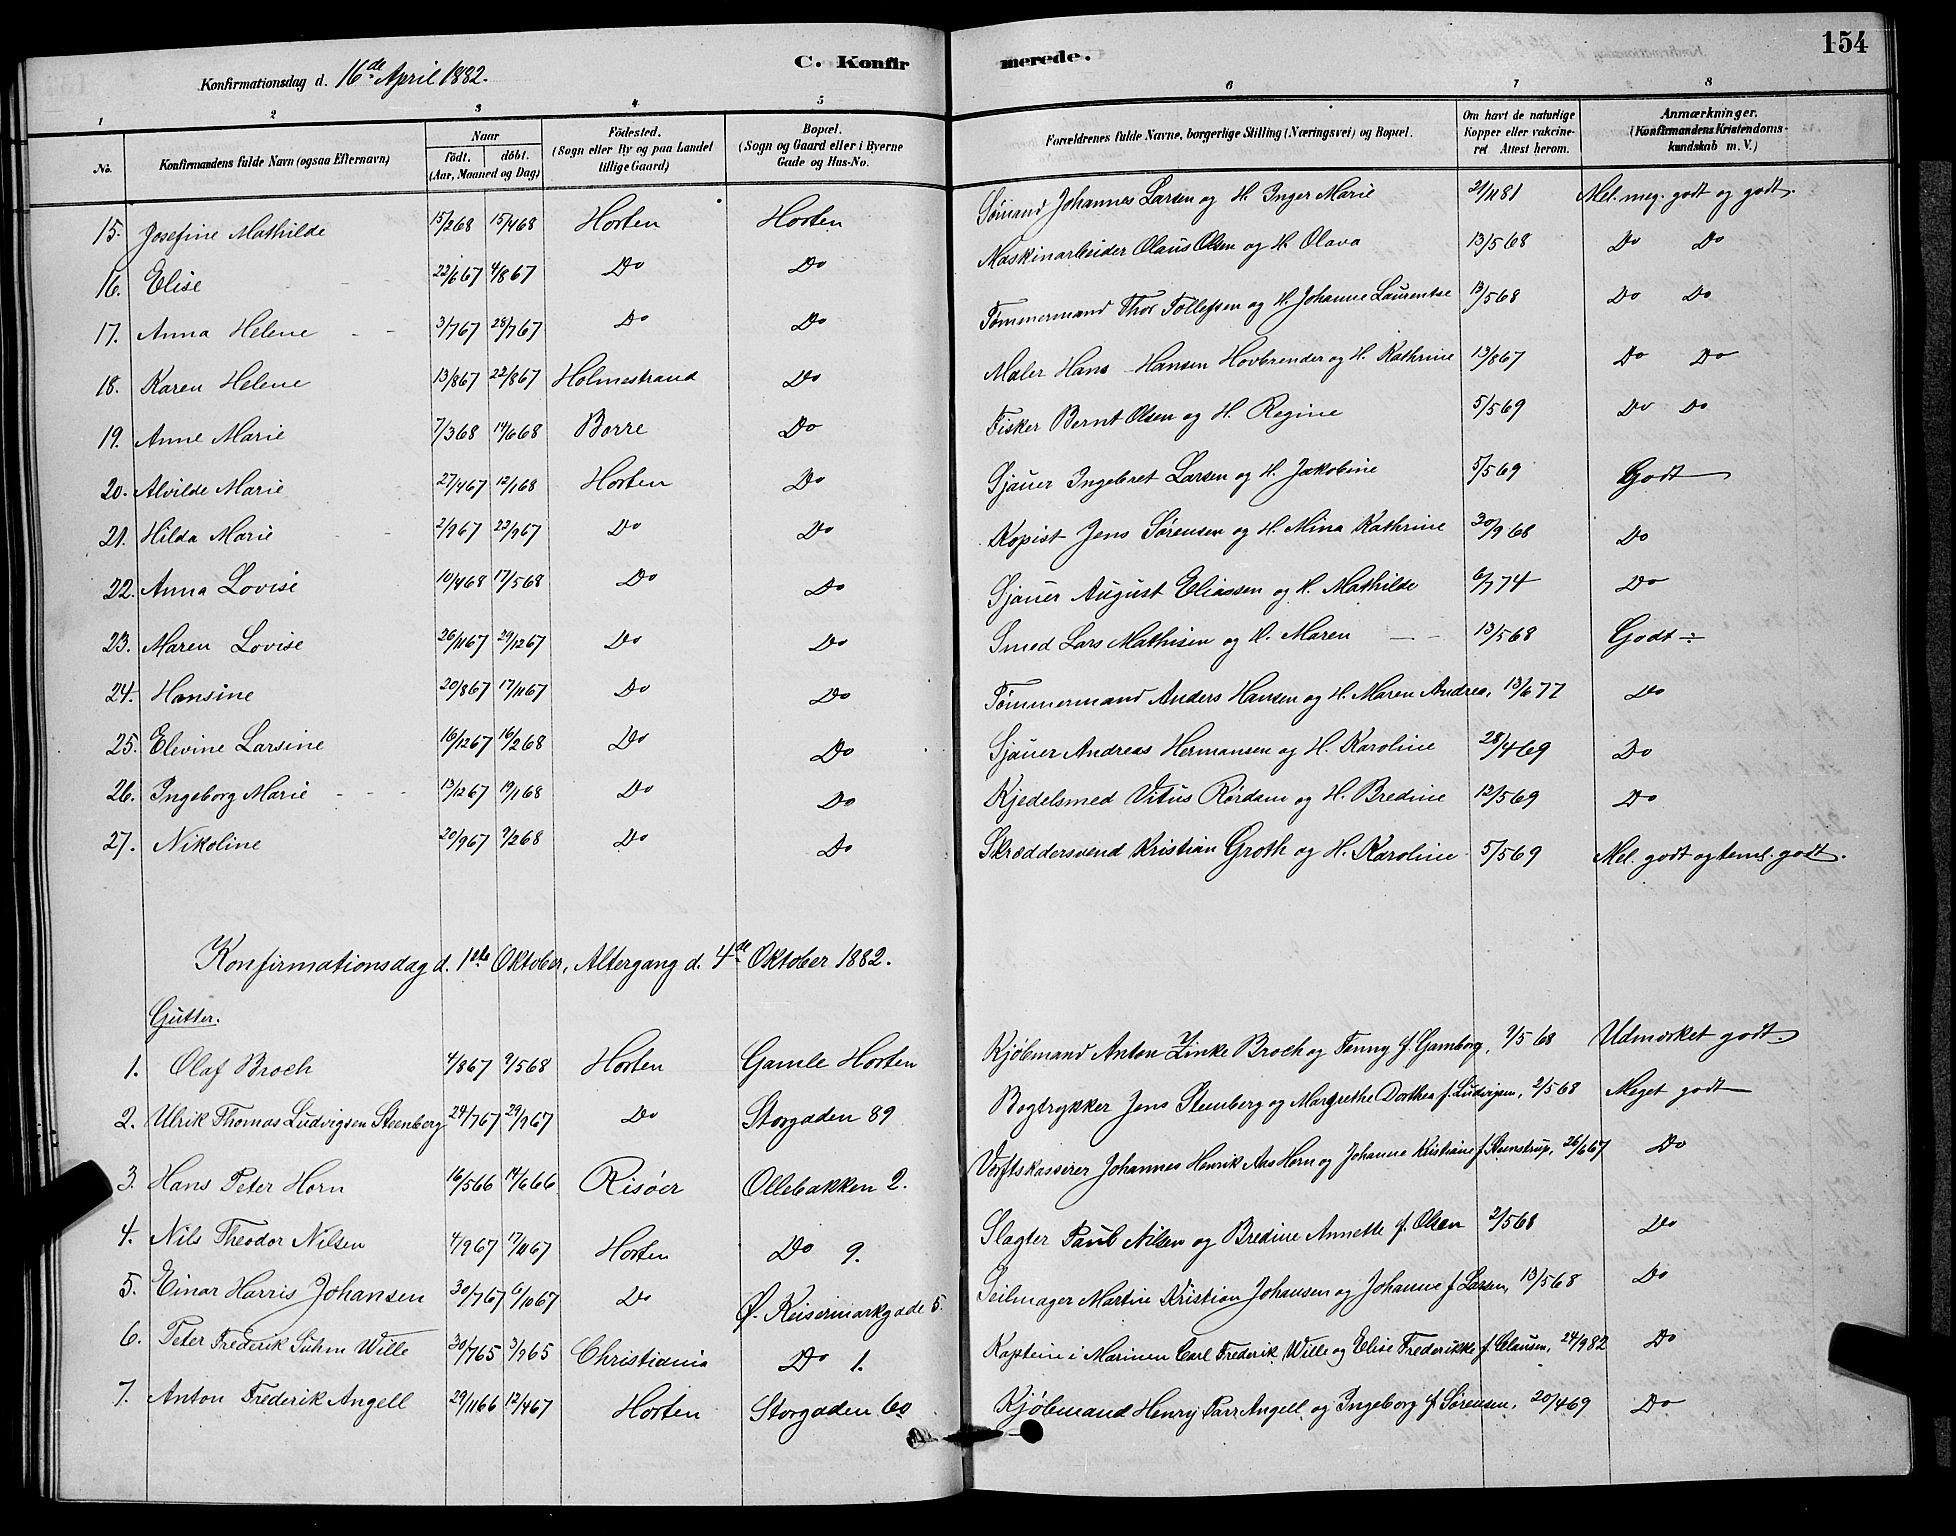 154
Konfirmationsdag d. 16de April 1882. C. Konfirmerede.
1 2 3 4 5 6 7 8
No. Konfirmandens fulde Navn (ogsaa Efternavn) Naar födt. döbt. (Aar, Maaned og Dag) Födested. (Sogn eller By og paa Landet tillige Gaard) Bopæl. (Sogn og Gaard eller i Byerne Gade og Hus-No. Forældrenes fulde Navne, borgerlige Stilling (Næringsvei) og Bopæl. Om havt de naturlige Kopper eller vakcineret Attest herom. Anmærkninger. (Konfirmandens Kristendomskundskab m. V.)
15. Josefine Mathilde 15/2 68 15/4 68 Horten Horten Sömand Johannes Larsen og H. Inger Marie 21/11 81 Mel. meg. godt og godt.
16. Elise 22/6 67 4/8 67 Do Do Maskinarbeider Olaus Olsen og H. Olava 13/5 68 Do Do
17. Anna Helene 3/7 67 28/7 67 Do Do Tömmermand Thor Tollefsen og H. Johanne Laurentse 13/5 68 Do Do
18. Karen Helene 13/8 67 22/8 67 Holmestrand Do Maler Hans Hansen Hovbrender og H. Kathrine 13/8 67 Do Do
19. Anne Marie 7/3 68 14/6 68 Borre Do Fisker Bernt Olsen og H. Regine 5/5 69 Do Do
20. Alvilde Marie 27/4 67 12/1 68 Horten Do Sjauer Ingebret Larsen og H. Jakobine 5/5 69 Godt
21. Hilda Marie 2/9 67 22/9 67 Do Do Kopist Jens Sörensen og H. Mina Kathrine 30/9 68 Do
22. Anna Lovise 10/4 68 17/5 68 Do Do Sjauer August Eliassen og H. Mathilde 6/7 74 Do
23. Maren Lovise 26/11 67 29/12 67 Do Do Smed Lars Mathisen og H. Maren 13/5 68 Godt ÷
24. Hansine 20/8 67 17/11 67 Do Do Tömmermand Anders Hansen og H. Maren Andrea, 13/6 77 Do
25. Elevine Larsine 16/12 67 16/2 68 Do Do Sjauer Andreas Hermansen og H. Karoline 28/4 69 Do
26. Ingeborg Marie 13/12 67 19/1 68 Do Do Kjedelsmed Vitus Rördam og H. Bredine 12/5 69 Do
27. Nikoline 20/9 67 9/2 68 Do Do Skræddersvend Kristian Groth og H. Karoline 5/5 69 Mel. godt og teml. godt.
Konfirmationsdag d. 1ste Oktober, Altergang d. 4de Oktober 1882.
Gutter.
1. Olaf Broch 4/8 67 9/5 68 Horten Gamle Horten Kjöbmand Anton Zinke Broch og Fanny f. Gamborg, 9/5 68 Udmærket godt.
2. Ulrik Thomas Ludvigsen Steenberg 24/7 67 29/9 67 Do Storgaden 89 Bogtrykker Jens Steenberg og Margrethe Dorthea f. Ludvigsen, 2/5 68 Meget godt
3. Hans Peter Horn 16/5 66 14/6 66 Risöer Ollebakken 2. Værftskasserer Johannes Henrik Aas Horn og Johanne Kristiane f. Steenstrup, 26/6 67 Do
4. Nils Theodor Nilsen 4/9 67 17/11 67 Horten Do 9. Slagter Paul Nilsen og Bredine Annette f. Olsen 2/5 68 Do
5. Einar Harris Johansen 30/7 67 6/10 67 Do Ø. Keisermarkgade 5. Seilmager Martin Kristian Johansen og Johanne f. Larsen, 13/5 68 Do
6. Peter Frederik Suhm Wille 30/7 65 3/9 65 Christiania Do 1. Kaptein i Marinen Carl Frederik Wille og Elise Frederikke f. Clausen, 24/9 82 Do
7. Anton Frederik Angell 29/11 66 12/4 67 Horten Storgaden 60 Kjöbmand Henry Parr Angell og Ingeborg f. Sörensen, 20/4 69 Do